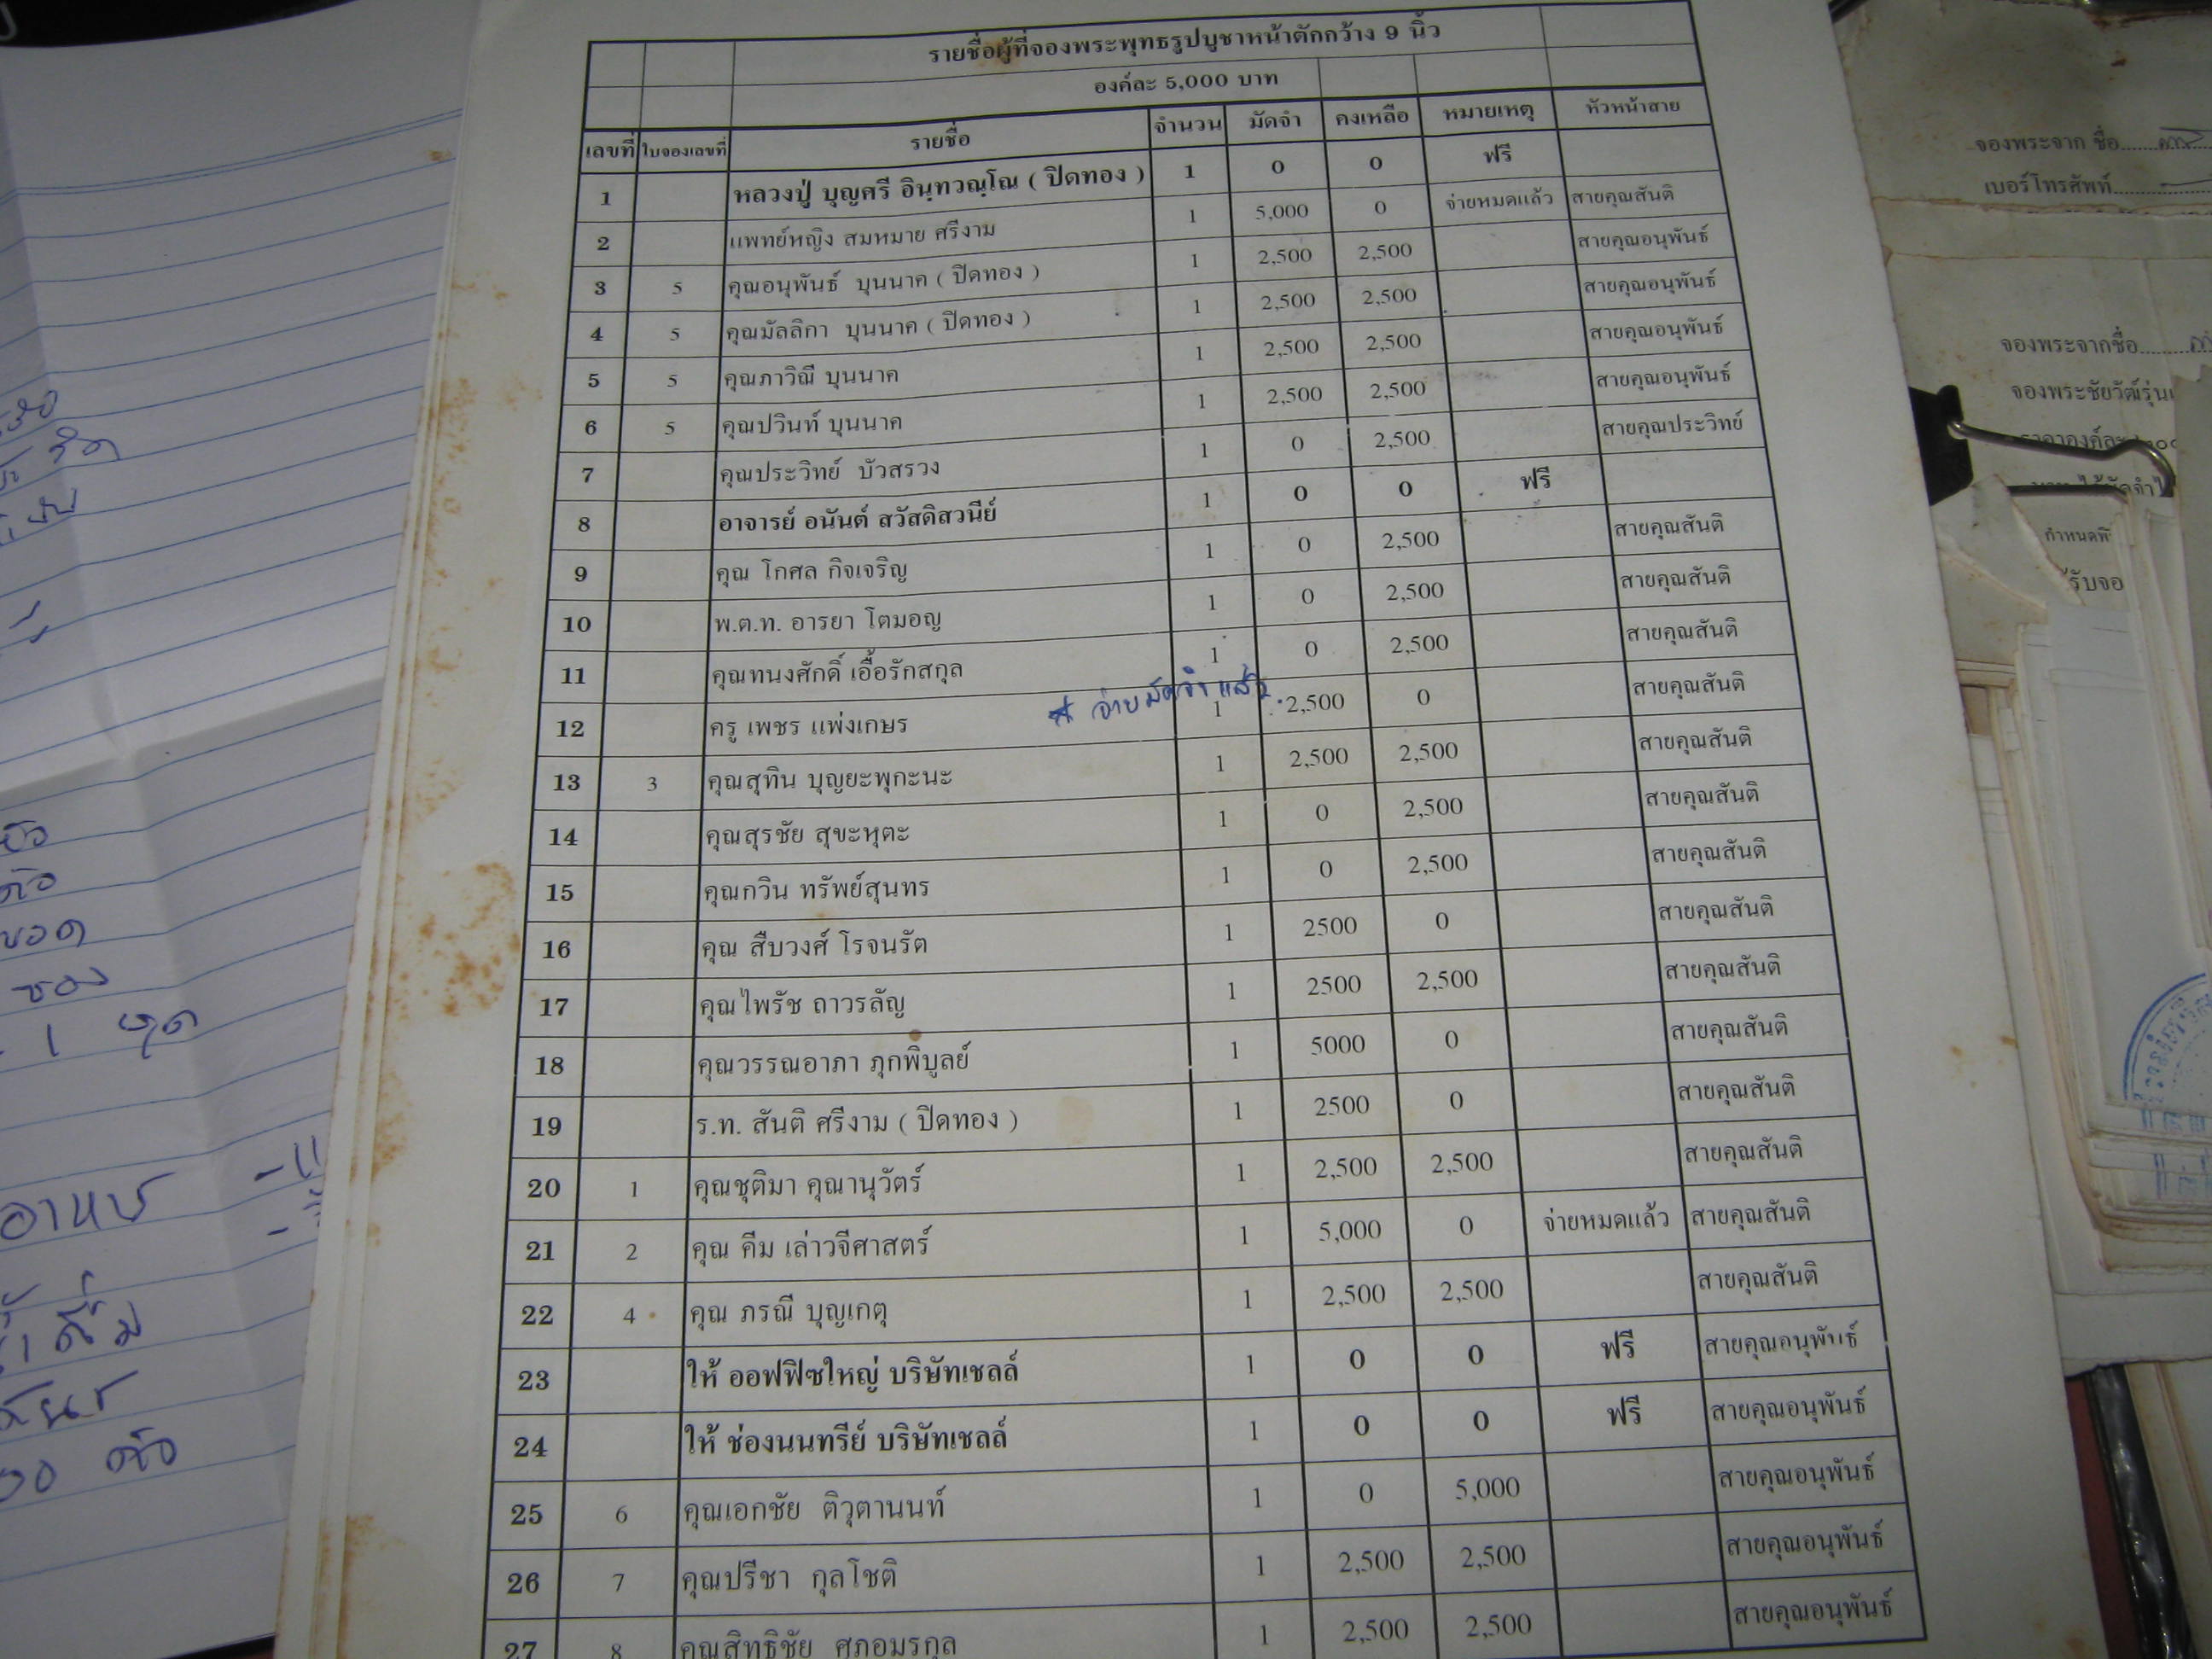 รายชื่อผู้ที่จองพระพุทธรูปบูชาหน้าตักกว้าง 9 นิ้ว
องค์ละ 5,000 บาท
เลขที่ ใบจองเลขที่ รายชื่อ จำนวน มัดจำ คงเหลือ หมายเหตุ หัวหน้าสาย
1 หลวงปู่ บุญศรี อินฺทวณฺโณ ( ปิดทอง ) 1 0 0 ฟรี
2 แพทย์หญิง สมหมาย ศรีงาม 1 5,000 0 จ่ายหมดแล้ว สายคุณสันติ
3 5 คุณอนุพันธ์ บุนนาค ( ปิดทอง ) 1 2,500 2,500 สายคุณอนุพันธ์
4 5 คุณมัลลิกา บุนนาค ( ปิดทอง ) 1 2,500 2,500 สายคุณอนุพันธ์
5 5 คุณภาวิณี บุนนาค 1 2,500 2,500 สายคุณอนุพันธ์
6 5 คุณปวินท์ บุนนาค 1 2,500 2,500 สายคุณอนุพันธ์
7 คุณประวิทย์ บัวสรวง 1 0 2,500 สายคุณประวิทย์
8 อาจารย์ อนันต์ สวัสดิสวนีย์ 1 0 0 ฟรี
9 คุณ โกศล กิจเจริญ 1 0 2,500 สายคุณสันติ
10 พ.ต.ท. อารยา โตมอญ 1 0 2,500 สายคุณสันติ
11 คุณทนงศักดิ์ เอื้อรักสกุล 1 0 2,500 สายคุณสันติ
12 ครู เพชร แพ่งเกษร * จ่ายมัดจำแล้ว 1 2,500 0 สายคุณสันติ
13 3 คุณสุทิน บุญยะพุกะนะ 1 2,500 2,500 สายคุณสันติ
14 คุณสุรชัย สุขะหุตะ 1 0 2,500 สายคุณสันติ
15 คุณกวิน ทรัพย์สุนทร 1 0 2,500 สายคุณสันติ
16 คุณ สืบวงศ์ โรจนรัต 1 2500 0 สายคุณสันติ
17 คุณไพรัช ถาวรลัญ 1 2500 2,500 สายคุณสันติ
18 คุณวรรณอาภา ภุกพิบูลย์ 1 5000 0 สายคุณสันติ
19 ร.ท. สันติ ศรีงาม ( ปิดทอง ) 1 2500 0 สายคุณสันติ
20 1 คุณชุติมา คุณานุวัตร์ 1 2,500 2,500 สายคุณสันติ
21 2 คุณ คีม เล่าวจีศาสตร์ 1 5,000 0 จ่ายหมดแล้ว สายคุณสันติ
22 4 คุณ ภรณี บุญเกตุ 1 2,500 2,500 สายคุณสันติ
23 ให้ ออฟฟิซใหญ่ บริษัทเชลล์ 1 0 0 ฟรี สายคุณอนุพันธ์
24 ให้ ช่องนนทรีย์ บริษัทเชลล์ 1 0 0 ฟรี สายคุณอนุพันธ์
25 6 คุณเอกชัย ติวุตานนท์ 1 0 5,000 สายคุณอนุพันธ์
26 7 คุณปรีชา กุลโชติ 1 2,500 2,500 สายคุณอนุพันธ์
27 8 คุณสิทธิชัย ศุภอมรกุล 1 2,500 2,500 สายคุณอนุพันธ์
จองพระจาก ชื่อ
เบอร์โทรศัพท์
จองพระจากชื่อ
จองพระชัยวัฒ์รุ่น
กำหนดพิ
รับจอ
ซอง
1 ชุด